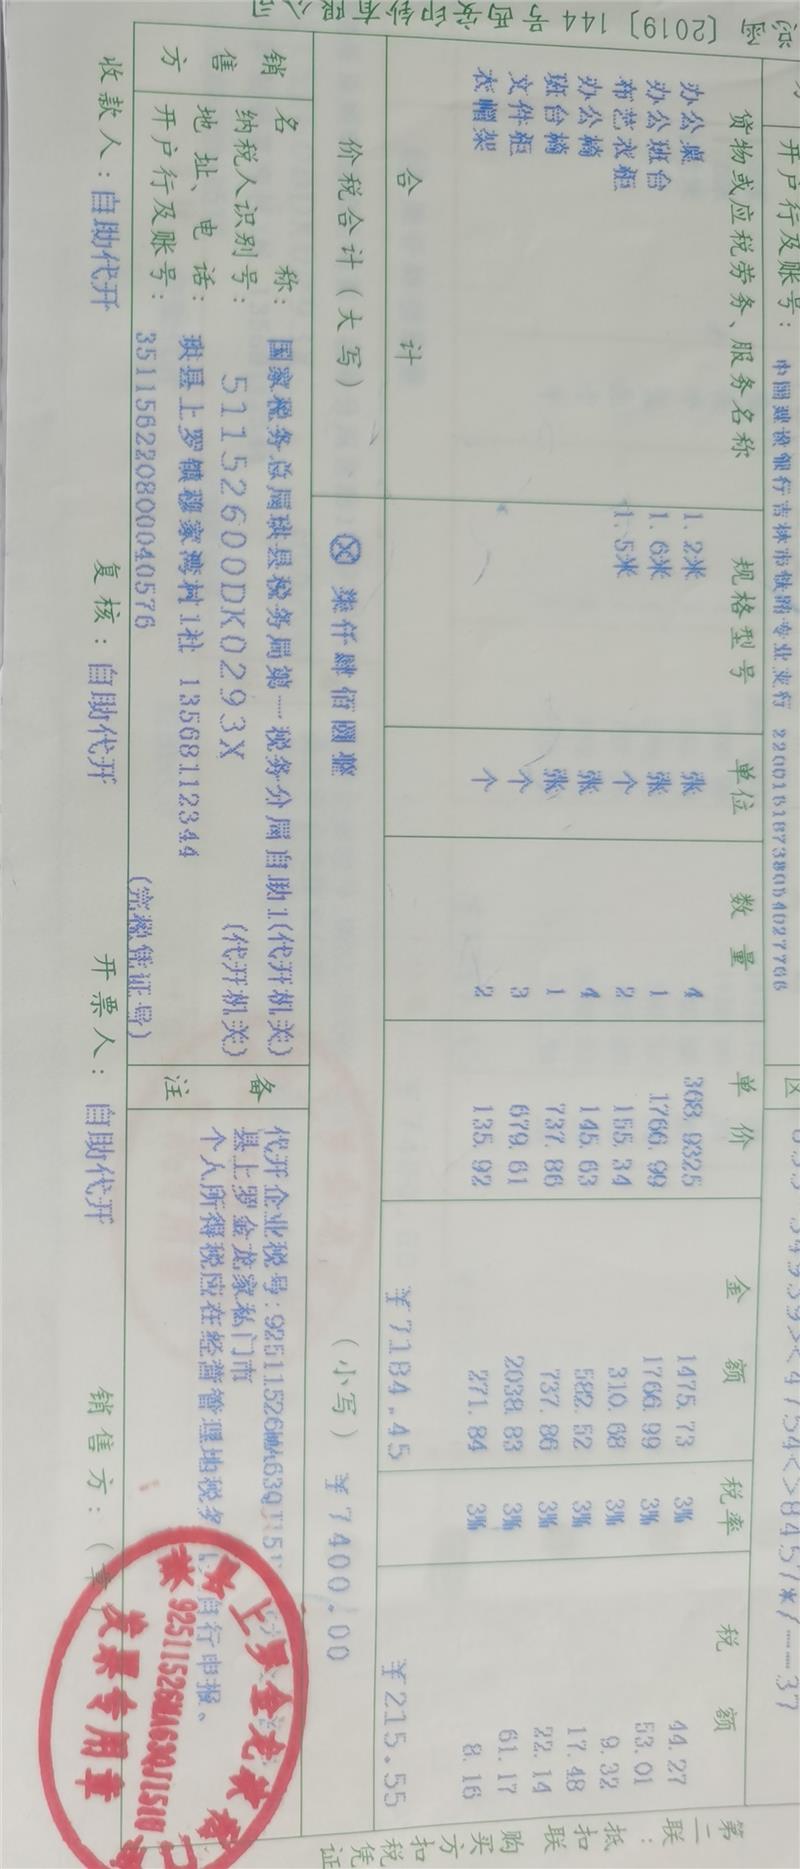 开户行及账号: 中国建设银行吉林市铁路专业支行 22001618738054027706
区
货物或应税劳务、服务名称 规格型号 单位 数量 单价 金额 税率 税额
办公桌 1.2米 张 4 368.9325 1475.73 3% 44.27
办公班台 1.6米 张 1 1766.99 1766.99 3% 53.01
布艺衣柜 1.5米 个 2 155.34 310.68 3% 9.32
办公椅 张 4 145.63 582.52 3% 17.48
班台椅 张 1 737.86 737.86 3% 22.14
文件柜 个 3 679.61 2038.83 3% 61.17
衣帽架 个 2 135.92 271.84 3% 8.16
合计 ¥7184.45 ¥215.55
价税合计(大写) ⊗ 柒仟肆佰圆整 (小写) ¥7400.00
销售方
名称: 国家税务总局珙县税务局第一税务分局自助1(代开机关)
纳税人识别号: 51152600DK0293X (代开机关)
地址、电话: 珙县上罗镇穆家湾村1社 13568112344
开户行及账号: 351156220800040576 (完税凭证号)
备注
代开企业税号:92511526MA63QJ151
县上罗金龙家私门市
个人所得税应在经营管理地税务 自行申报、
收款人: 自助代开 复核: 自助代开 开票人: 自助代开 销售方:(章)
上罗金龙家私门
92511526MA63QJ151U
发票专用章
第二联:抵扣联 购买方扣税凭证
〔2019〕144号西安印钞有限公司